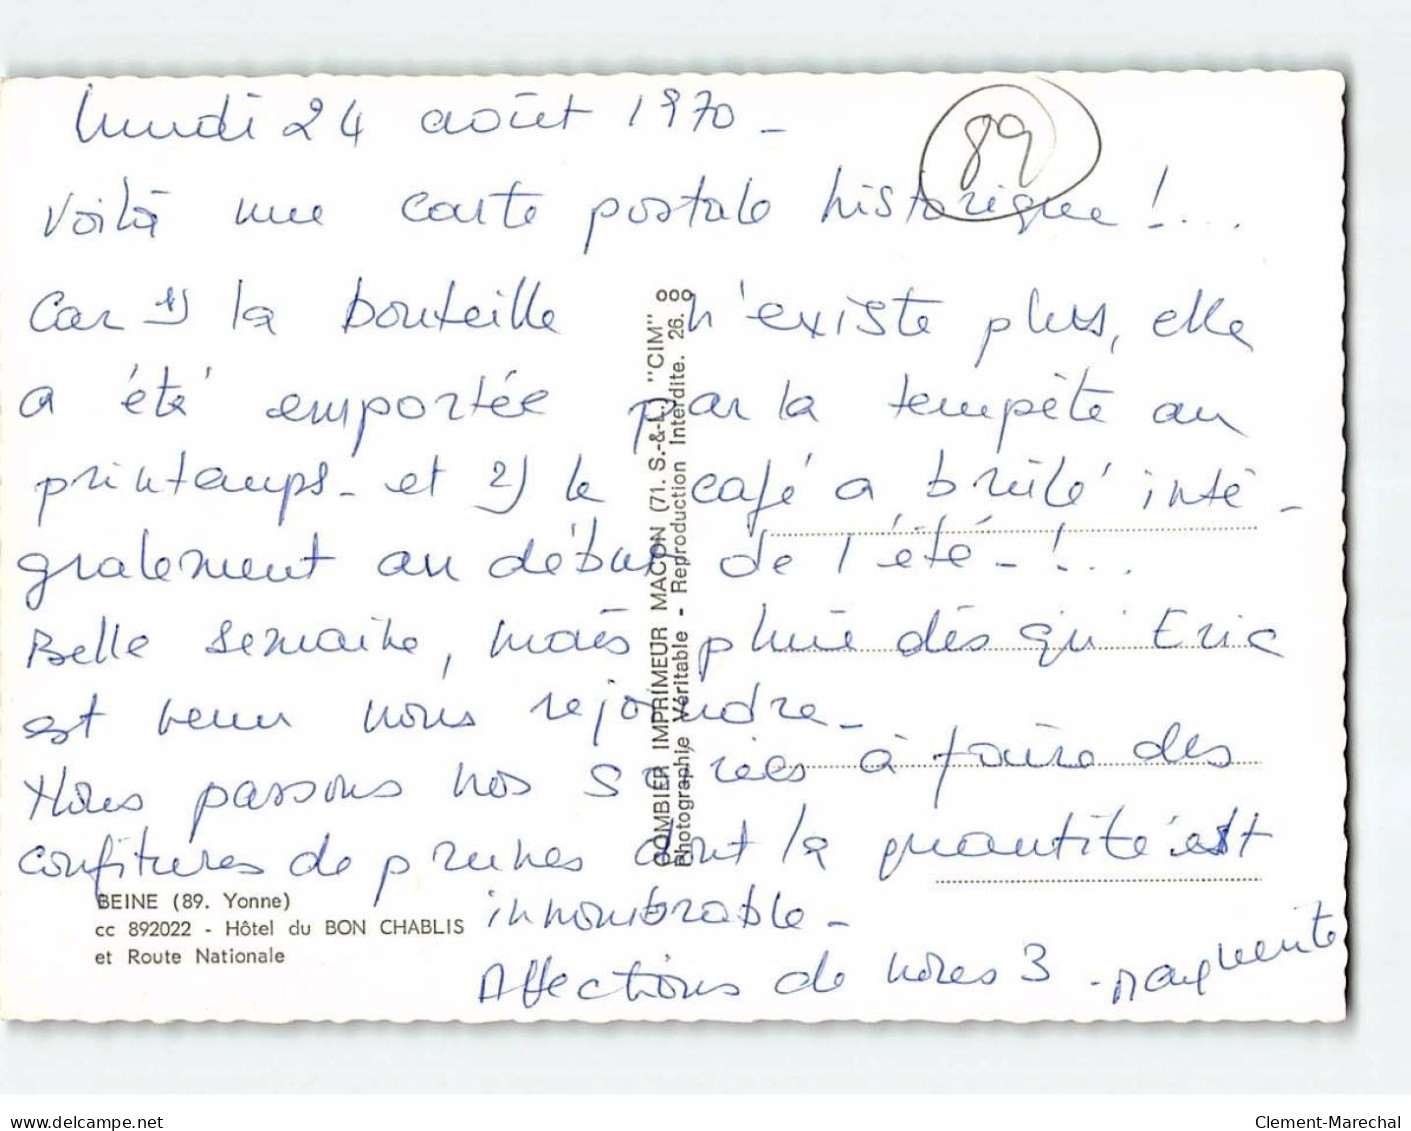 lundi 24 août 1970 -
89
Voilà une carte postale historique !...
Car 1) la bouteille n'existe plus, elle
a été emportée par la tempête au
printemps - et 2) le café a brûlé inté-
gralement au début de l'été - !...
Belle semaine, mais pluie dès qu'Eric
est venu nous rejoindre -
Nous passons nos soirées à faire des
confitures de prunes dont la quantité est
innombrable -
Affections de nous 3 - Marguerite
BEINE (89. Yonne)
cc 892022 - Hôtel du BON CHABLIS
et Route Nationale
COMBIER IMPRIMEUR MACON (71. S.-&-L.) "CIM"
Photographie Véritable - Reproduction Interdite. 26.
www.delcampe.net
Clement-Marechal